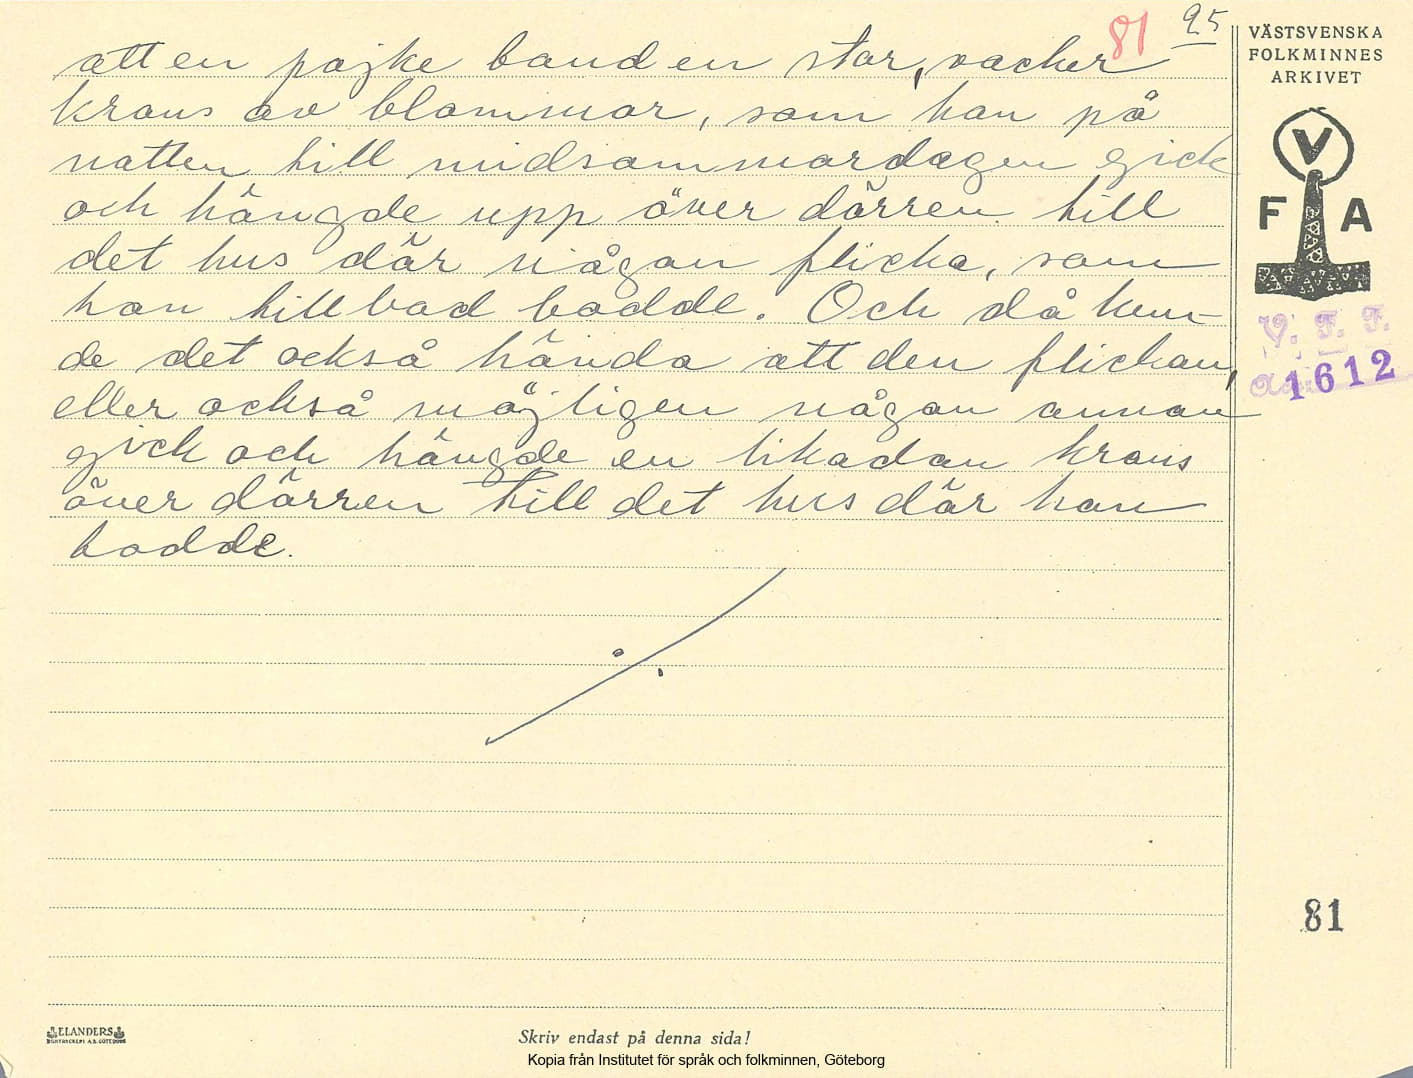 81 95
att en pojke band en stor, vacker
krans av blommor, som han på
natten till midsommardagen gick
och hängde upp över dörren till
det hus där någon flicka, som
han tillbad bodde. Och då kun-
de det också hända att den flickan,
eller också möjligen någon annan
gick och hängde en likadan krans
över dörren till det hus där han
bodde.
VÄSTSVENSKA
FOLKMINNES
ARKIVET
V
F A
V. F. F.
1612
81
ELANDERS
Skriv endast på denna sida!
Kopia från Institutet för språk och folkminnen, Göteborg